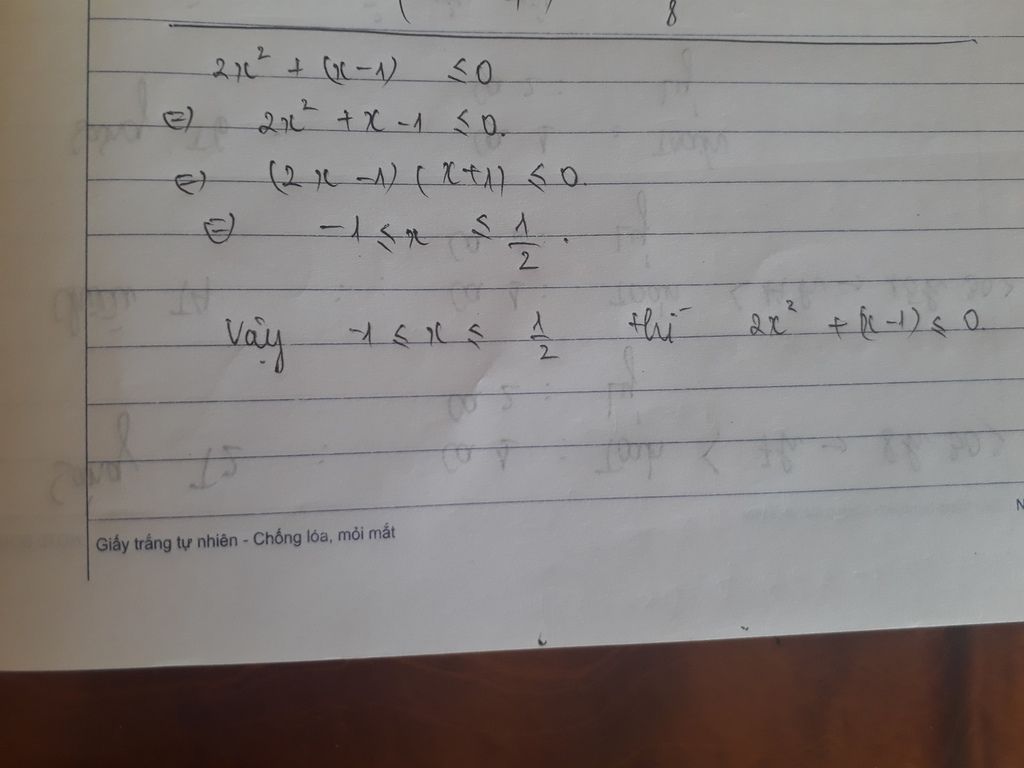 8
2x² + (x-1) ≤ 0
⇔ 2x² + x - 1 ≤ 0.
⇔ (2x - 1) (x+1) ≤ 0.
⇔ -1 ≤ x ≤ 1/2.
Vậy -1 ≤ x ≤ 1/2 thì 2x² + (x-1) ≤ 0.
Giấy trắng tự nhiên - Chống lóa, mỏi mắt